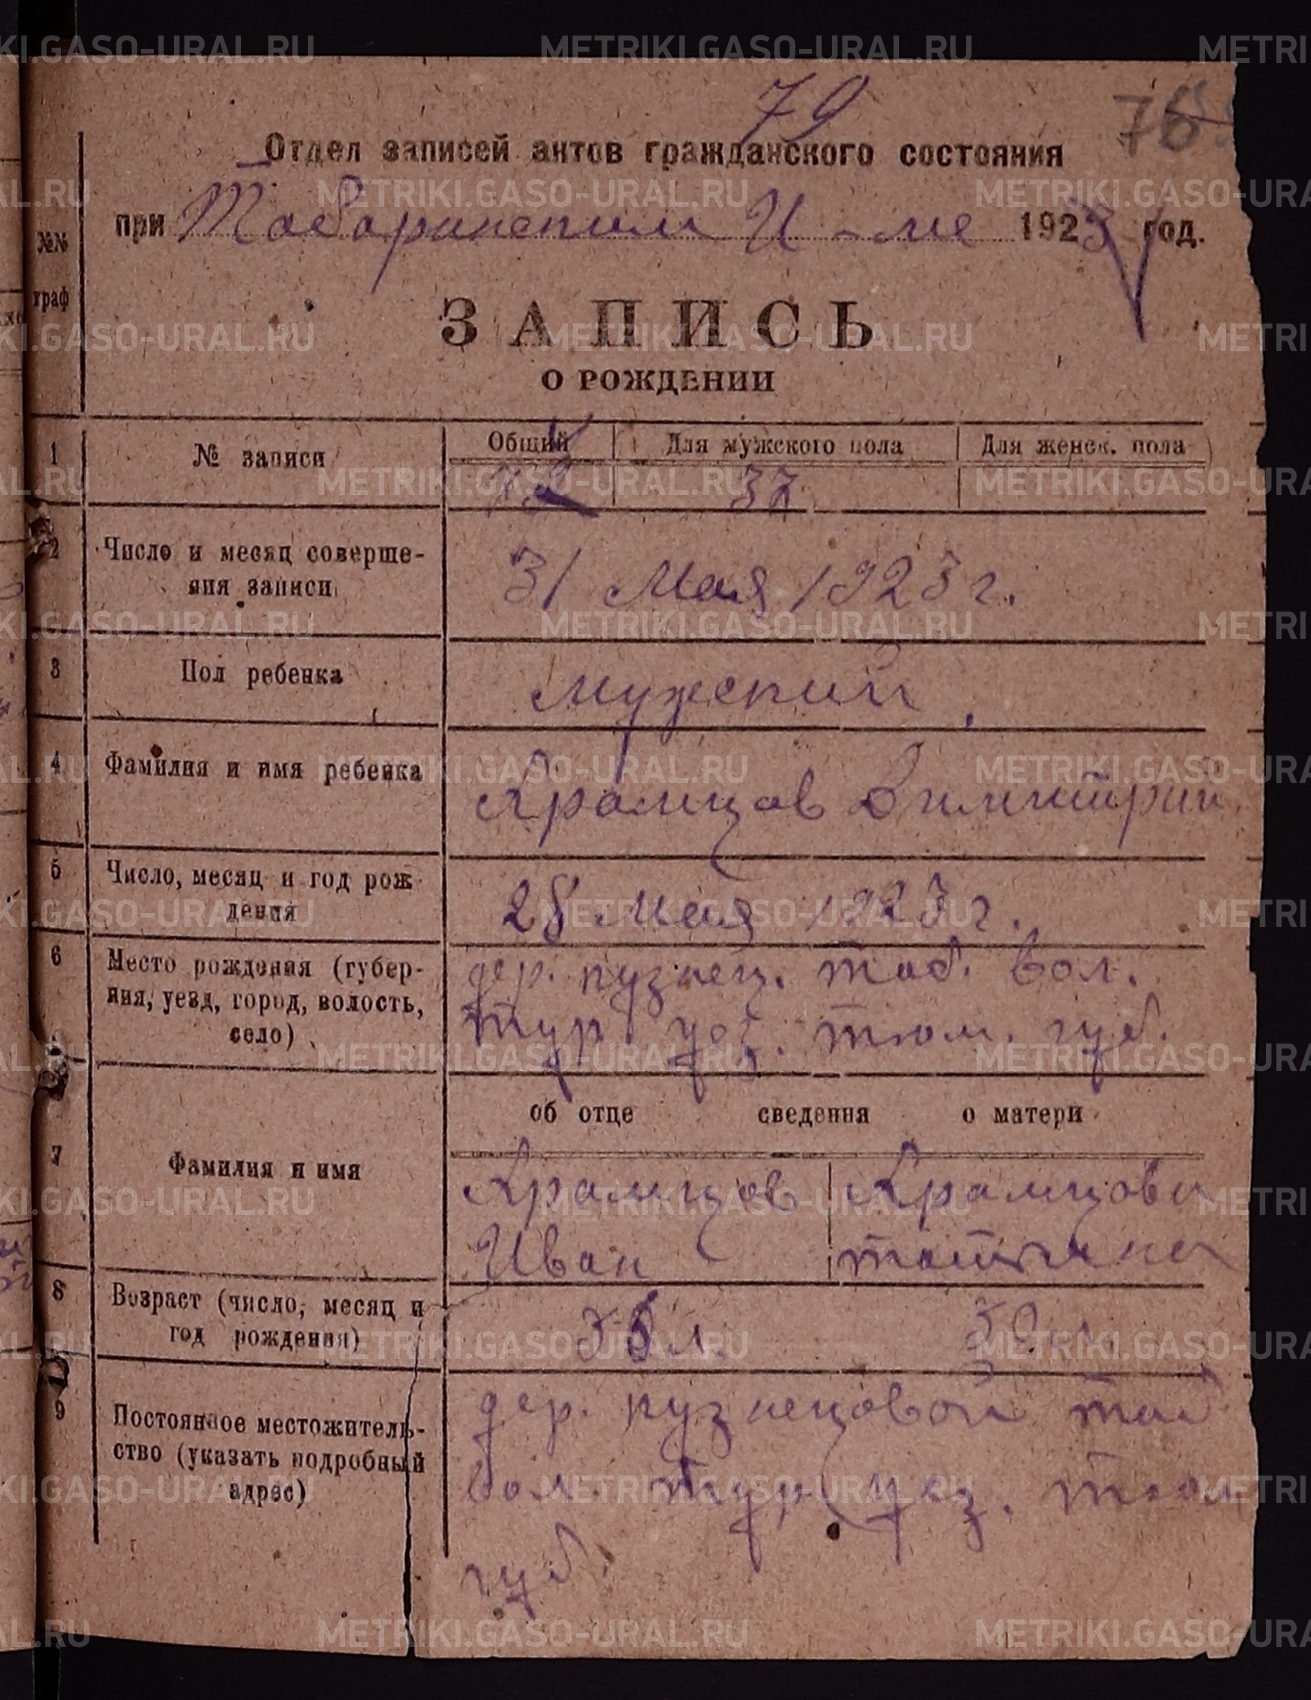 79
Отдел записей актов гражданского состояния
при Таборинском И-ме 1923 год.
№№ граф
ЗАПИСЬ
О РОЖДЕНИИ
1 № записи Общий Для мужского пола Для женск. пола
37
2 Число и месяц соверше-
ния записи
31 Мая 1923 г.
3 Пол ребенка мужский
4 Фамилия и имя ребенка
Храмцов Димитрий
5 Число, месяц и год рож-
дения
28 Мая 1923 г.
6 Место рождения (губер-
ния, уезд, город, волость,
село)
дер. кузнец. таб. вол.
тур. уез. тюм. губ.
об отце сведения о матери
7 Фамилия и имя
Храмцов Храмцова
Иван татияна
8 Возраст (число, месяц и
год рождения)
л.
9 Постоянное местожитель-
ство (указать подробный
адрес)
дер. кузнецовой таб.
вол. тур. уез. тюм.
губ.
METRIKI.GASO-URAL.RU